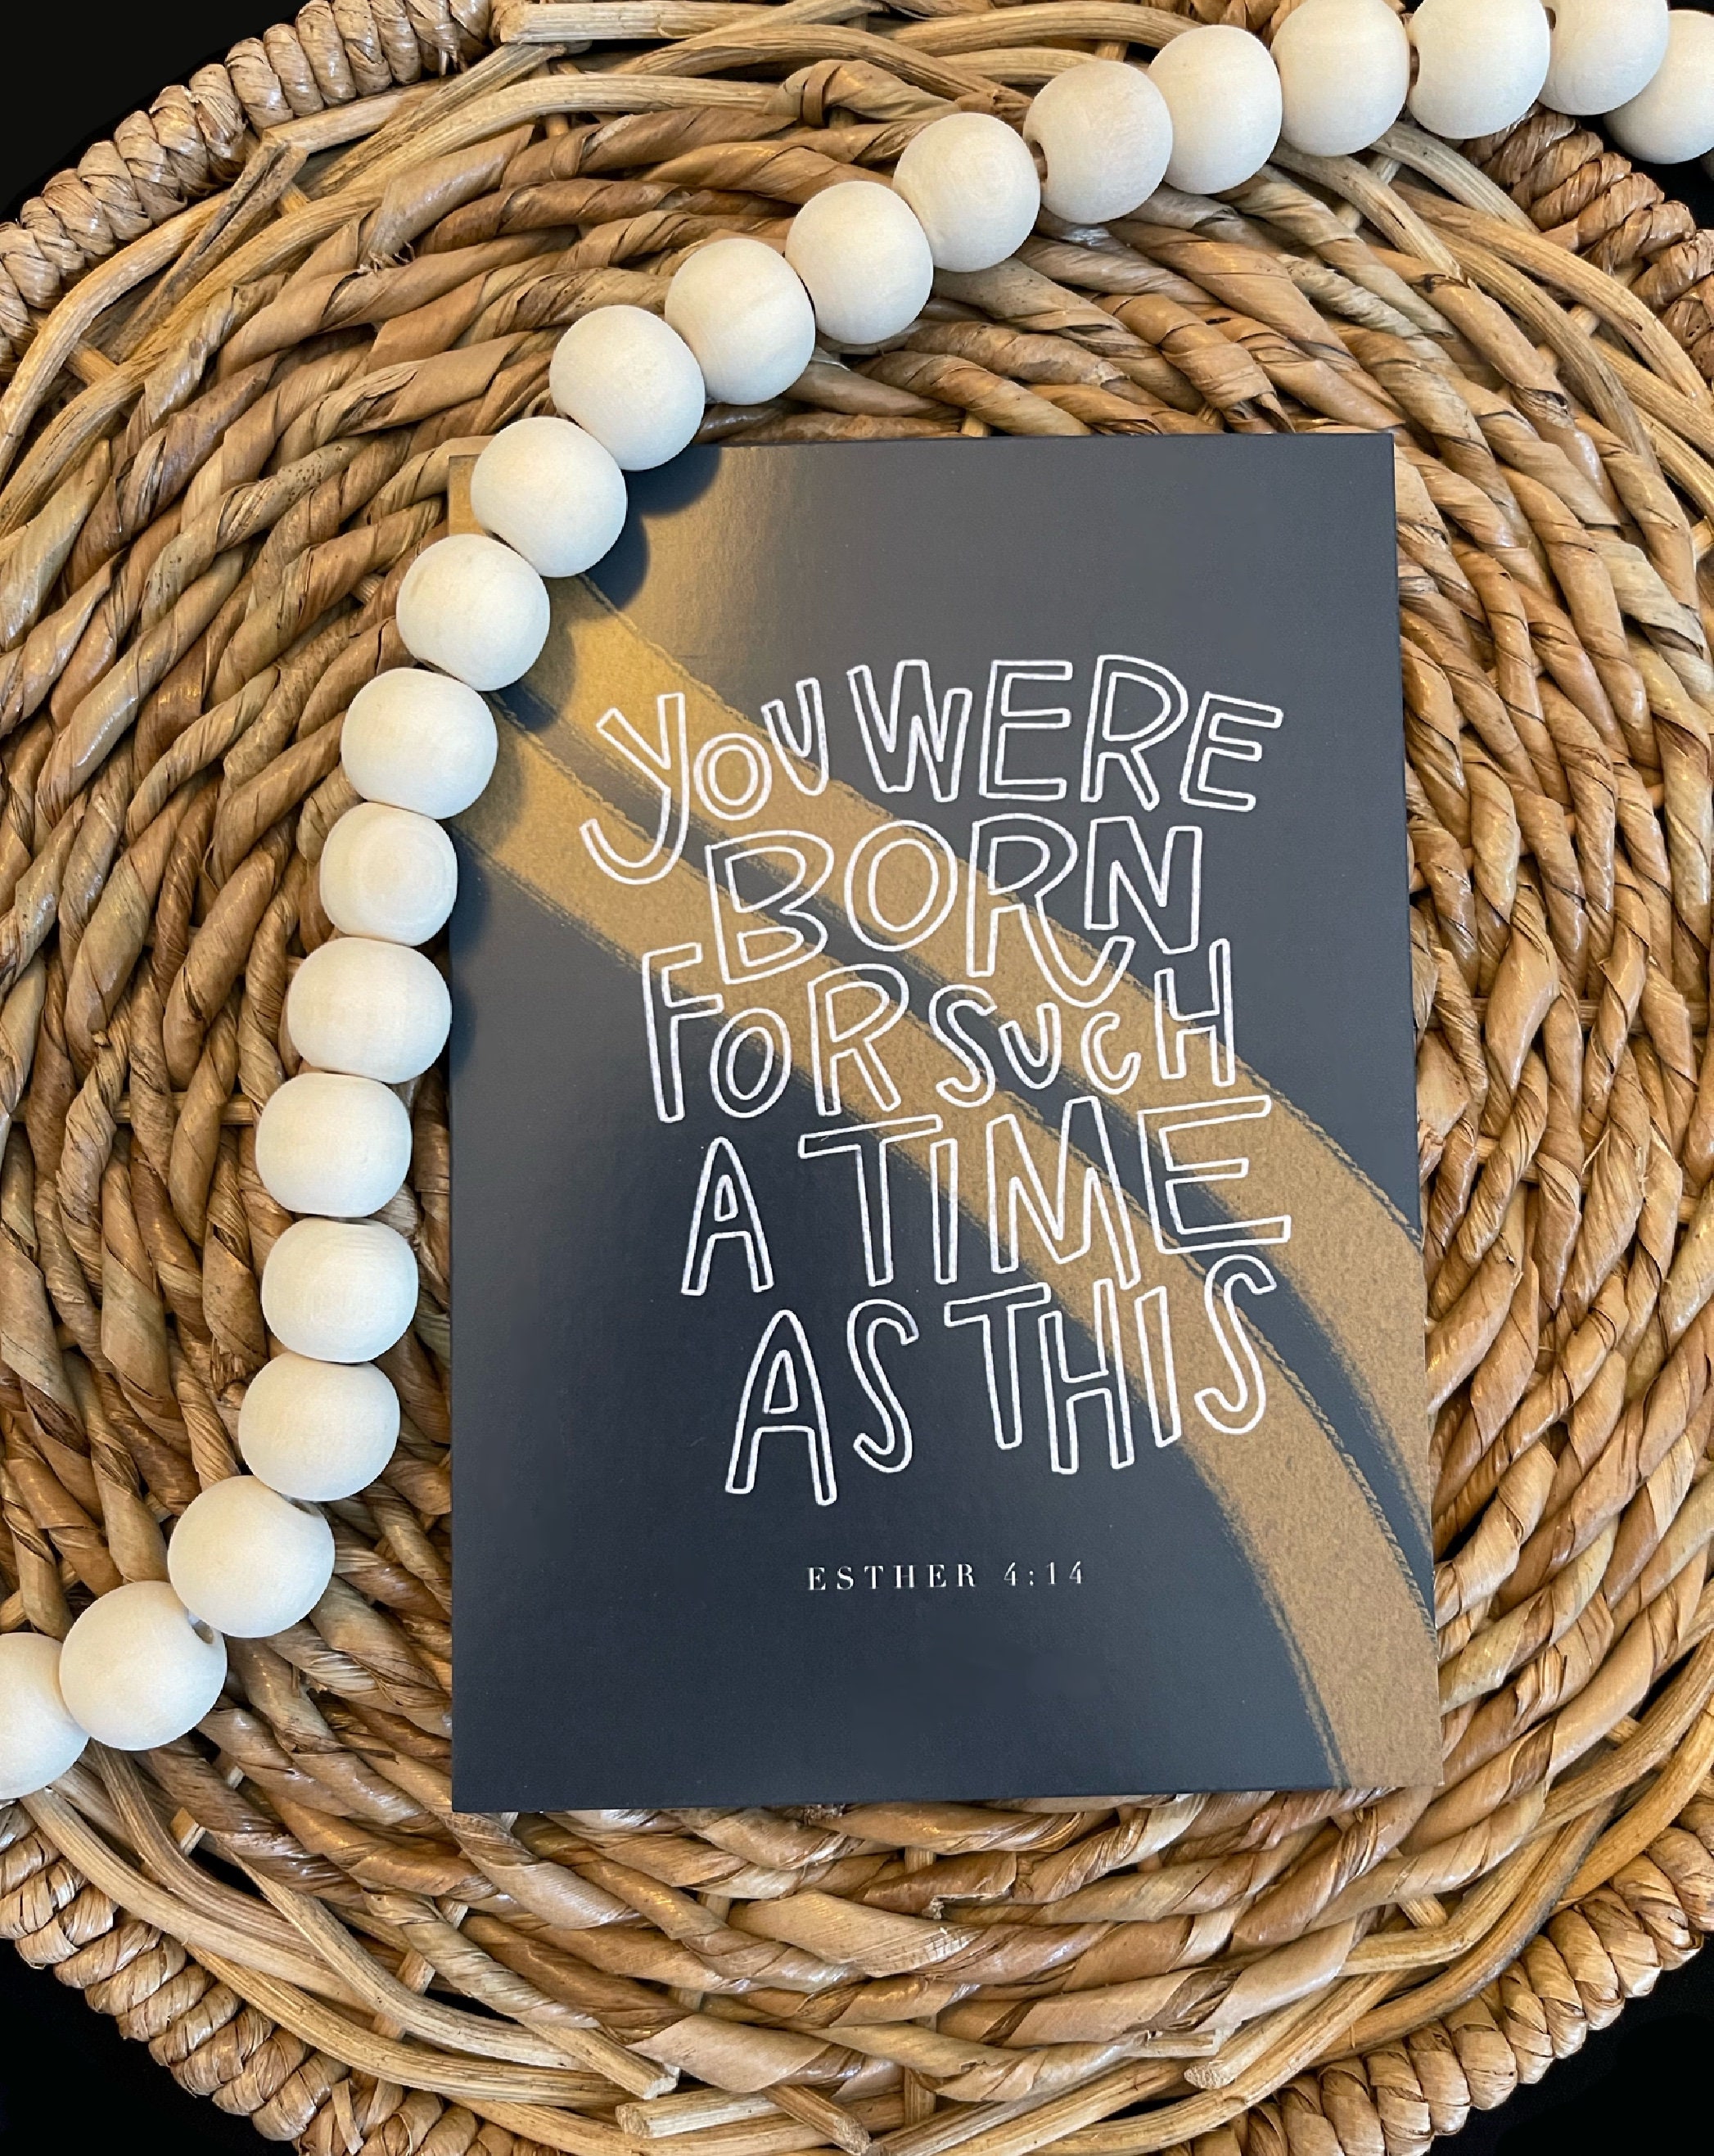 YOU WERE
BORN
FOR SUCH
A TIME
AS THIS
ESTHER 4:14